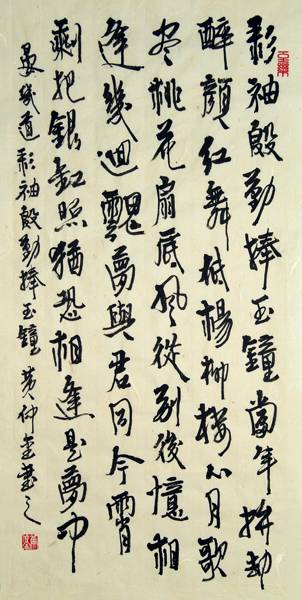 彩袖殷勤捧玉鐘當年拚却
醉顏紅舞低楊柳樓心月歌
尽桃花扇底風從別後憶相
逢幾迴魂夢與君同今宵
剩把銀缸照猶恐相逢是夢中
晏幾道彩袖殷勤捧玉鐘 黄仲書之